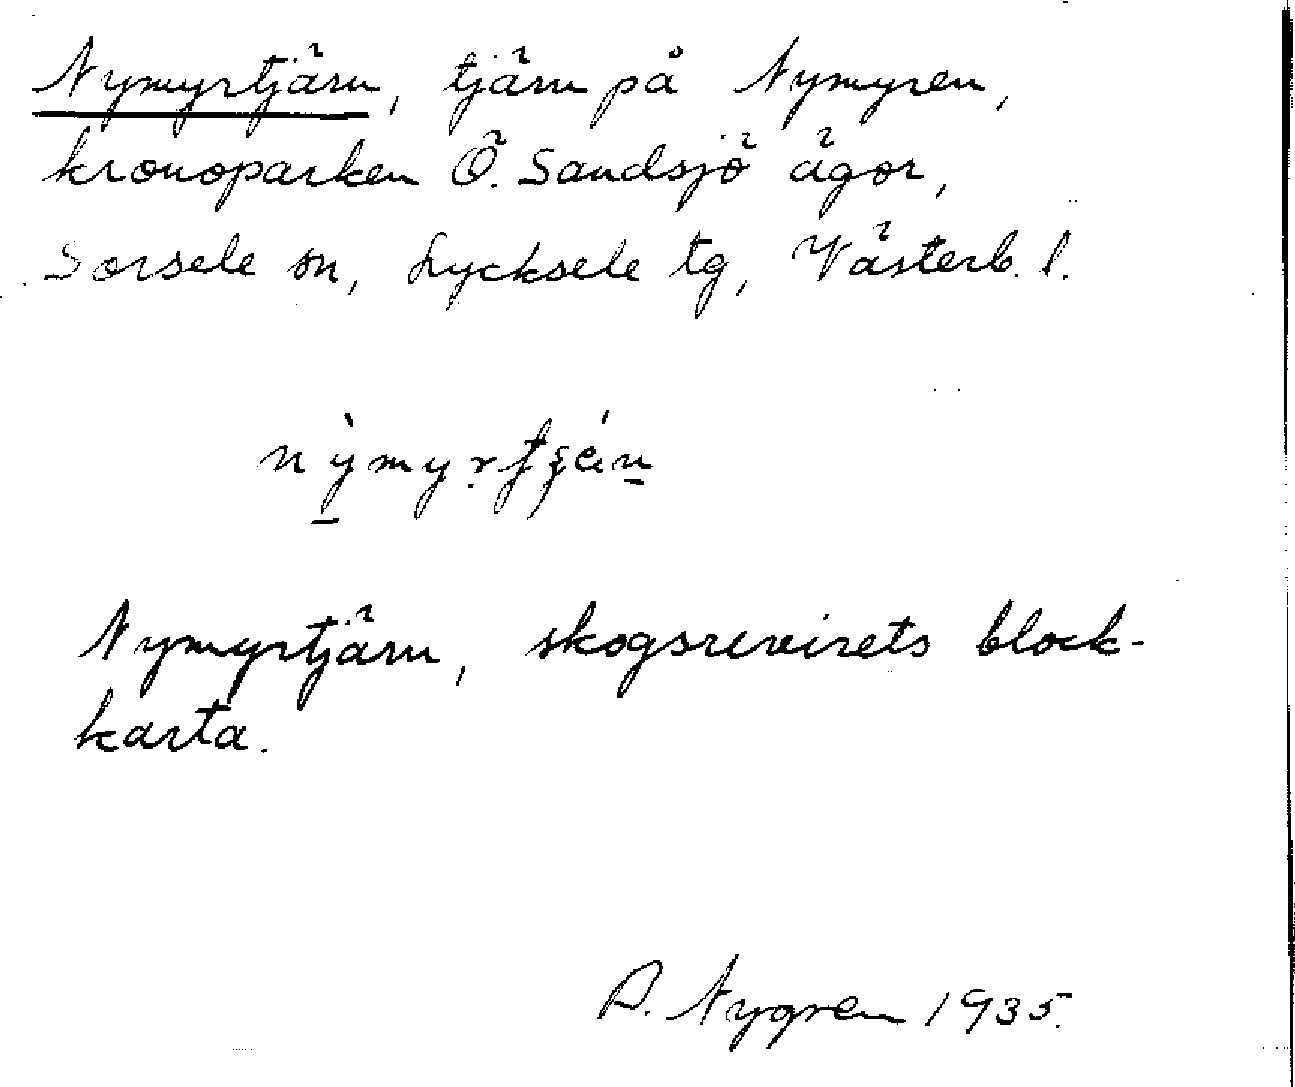 Nymyrtjärn, tjärn på Nymyren,
kronoparken Ö. Sandsjö ägor,
Sorsele sn, Lycksele tg, Västerb. l.
Nymyrtjärn, skogsrevirets block-
karta.
A. Nygren 1935.